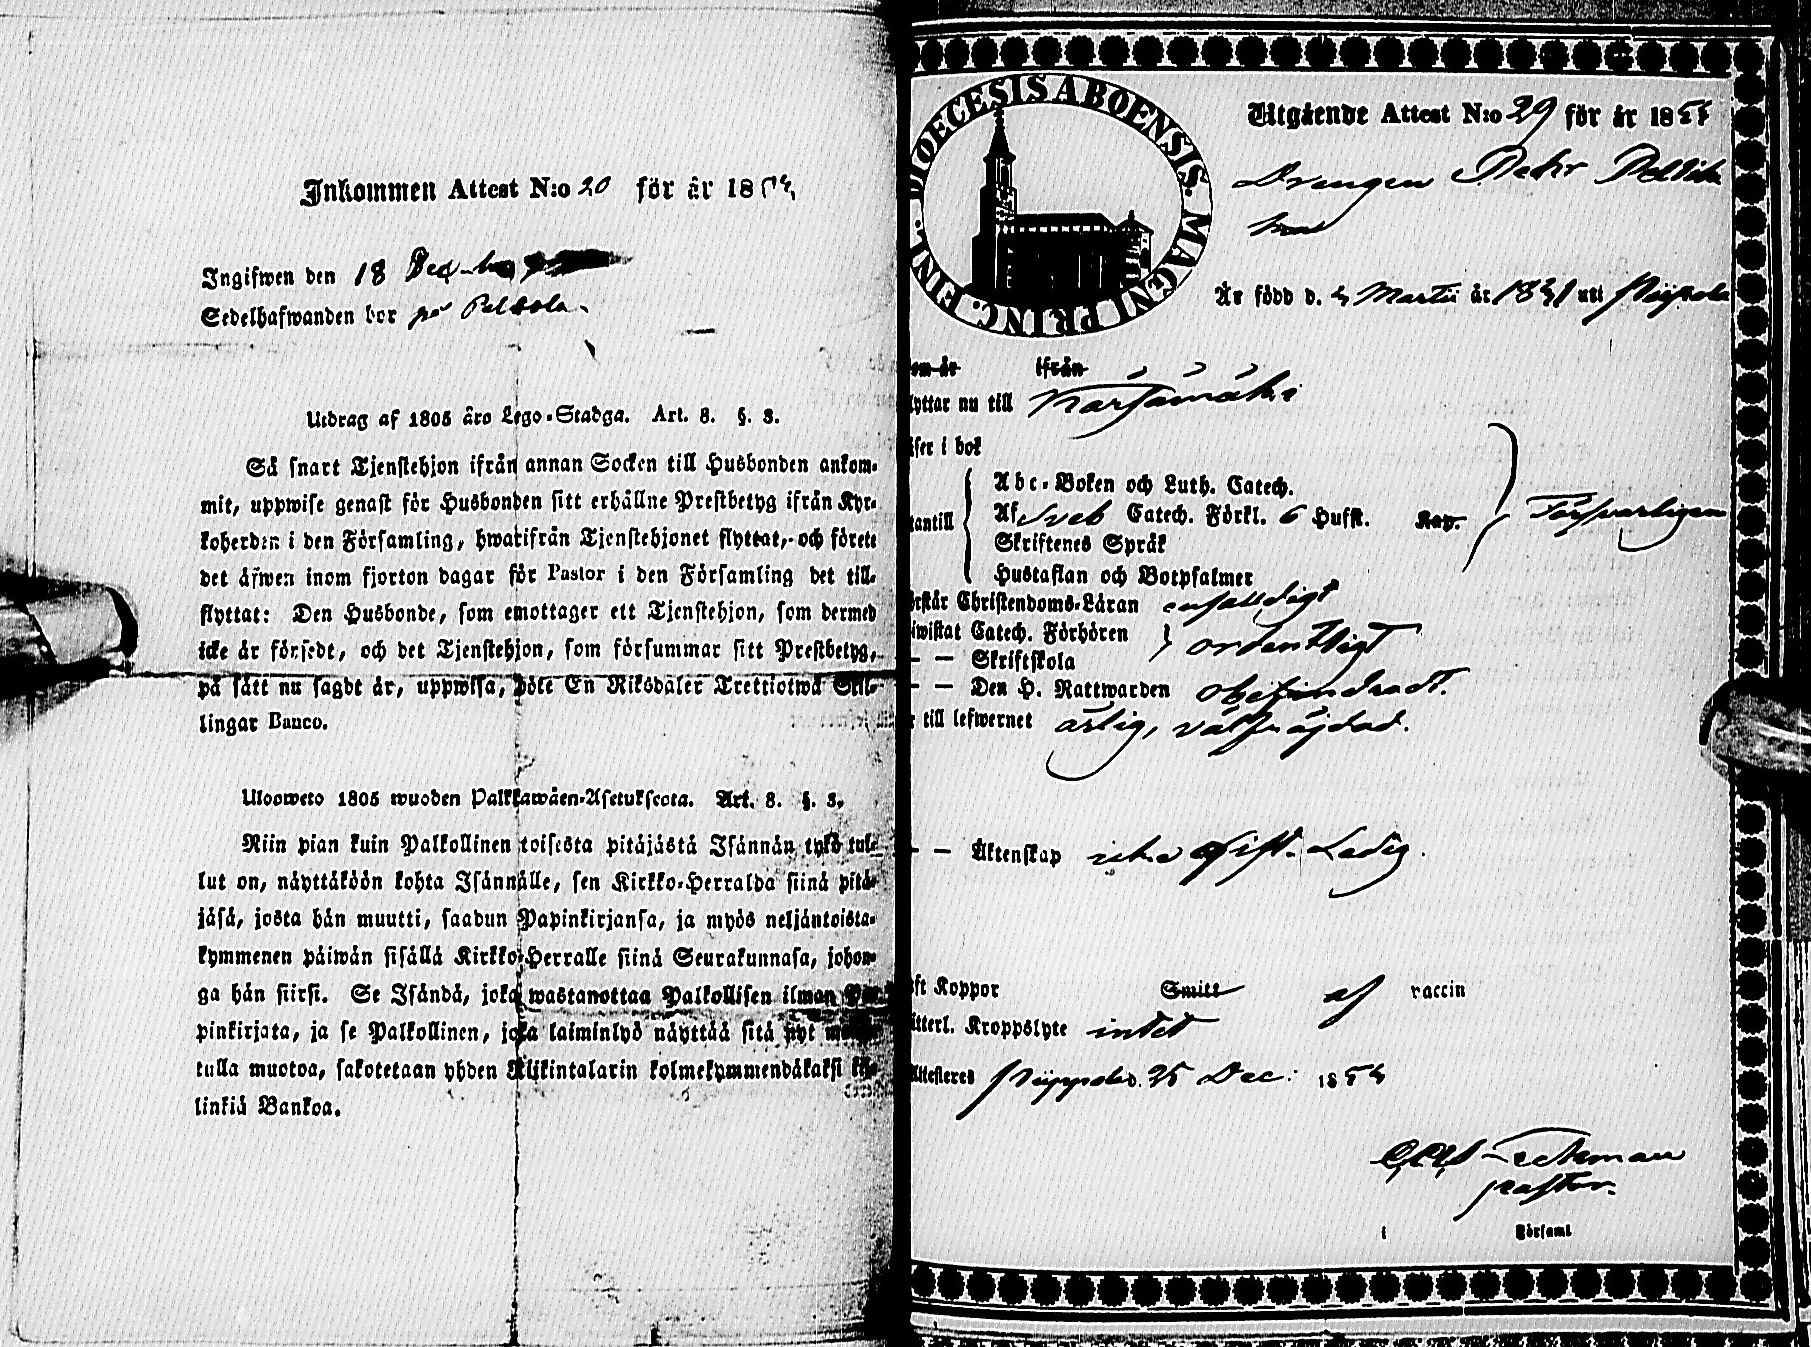 Inkommen Attest N:o 20 för år 18
Ingifwen den 18
Sedelhafwanden bor på
Utdrag af 1805 års Lego-Stadga. Art. 8. §. 3.
Så snart Tjenstehjon ifrån annan Socken till Husbonden ankom-
mit, uppwise genast för Husbonden sitt erhållne Prestbetyg ifrån Kyr-
koherden i den Församling, hwarifrån Tjenstehjonet flyttat, och förete
det äfwen inom fjorton dagar för Pastor i den Församling det till-
flyttat: Den Husbonde, som emottager ett Tjenstehjon, som dermed
icke är försedt, och det Tjenstehjon, som försummar sitt Prestbetyg,
på sätt nu sagdt är, uppwisa, böte En Riksdaler Trettiotwå Skil-
lingar Banco.
Ulosweto 1805 wuoden Palkkawäen-Asetuksesta. Art. 8. §. 3.
Niin pian kuin Palkollinen toisesta pitäjästä Isännän tykö tul-
lut on, näyttäköön kohta Isännälle, sen Kirkko-Herralda siinä pitä-
jäsä, josta hän muutti, saadun Papinkirjansa, ja myös neljäntoista-
kymmenen päiwän sisällä Kirkko-Herralle siinä Seurakunnasa, johon-
ga hän siirsi. Se Isändä, joka wastanottaa Palkollisen ilman Pa-
pinkirjata, ja se Palkollinen, joka laiminlyö näyttää sitä nyt
tulla muotoa, sakotetaan yhden Riikintalarin kolmekymmendäkaksi kil-
linkiä Bankoa.
DIOECESIS ABOENSIS. MAGNI PRINC. FINL.
Utgående Attest N:o 29 för år 18
Drengen Pehr
Är född d. 4 Martii år uti
ifrån
flyttar nu till Kärsämäki
läser i bok
Abc-Boken och Luth. Catech.
utantill Af Sveb Catech. Förkl. 6 Hufst. Kap. Försvarligen
Skriftenes Språk
Hustaflan och Botpsalmer
förstår Christendoms-Läran enfalldigt
biwistat Catech. Förhören ordentligt
— — Skriftskola
— — Den H. Nattwarden obehindradt.
till lefwernet ärlig, välfrägdad.
— — Äktenskap icke gift. Ledig.
haft Koppor Smitt af vaccin
ytterl. Kroppslyte intet
Attesteras d. 25 Dec: 1854
pastor.
i Församl